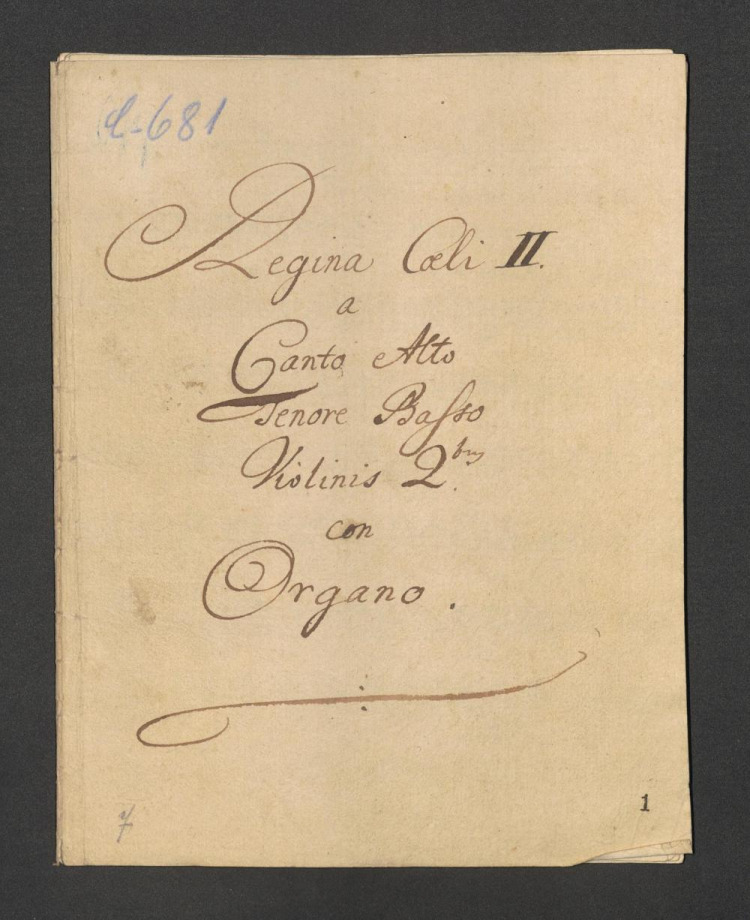 C-681
Regina Cœli II.
a
Canto Alto
Tenore Basso
Violinis 2bus
con
Organo.
1
7